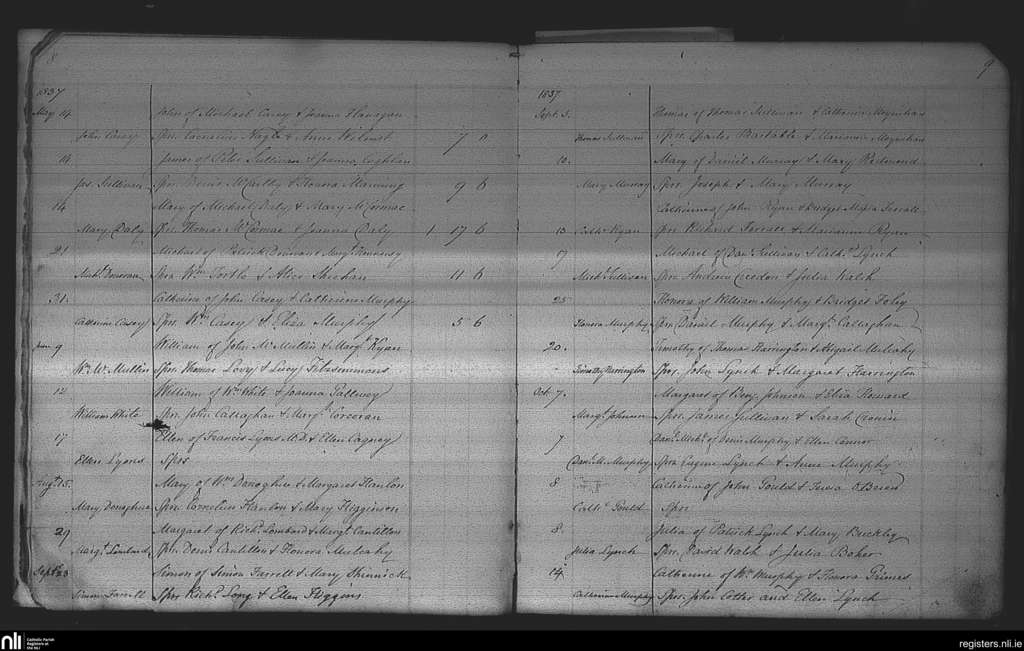 8
1837
May 14 John of Michael Casey & Joanna Flanagan
John Casey Sprs. Cornelius Nagle & Anne Wilmot 7 0
14 James of Peter Sullivan & Joanna Coghlan
Jas. Sullivan Spr. Denis McCarthy & Honora Manning 9 6
14 Mary of Michael Daly & Mary McCormac
Mary Daly Spr. Thomas McCormac & Joanna Daly 1 17 6
21 Michael of Patrick Donovan & Mary Hennessy
Michl. Donovan Sprs Wm & Alice Sheehan 11 6
31. Catherine of John Casey & Catherine Murphy
Catherine Casey Sprs. Wm Casey & Eliza Murphy 5 6
June 9 William of John McMullin & Margt. Ryan
Wm. McMullin Sprs. Thomas Levy & Lucy Fitzsimmons
12 William of Wm White & Joanna Gallwey
William White Spr. John Callaghan & Margt. Corcoran
17 Ellen of Francis Lyons M.D. & Ellen Cagney
Ellen Lyons Sprs
Augt. 15. Mary of Wm Donoghue & Margaret Hanlon
Mary Donoghue Spr. Cornelius Hanlon & Mary Higginson
29 Margaret of Richd. Lombard & Margt. Cantillon
Margt. Lombard Spr. Denis Cantillon & Honora Mulcahy
Septr. 3 Simon of Simon Farrell & Mary Shinnick
Simon Farrell Sprs Richd. Long & Ellen Higgens
9
1837
Sept. 3. Thomas of Thomas Sullivan & Catherine Moynihan
Thomas Sullivan Sprs. Charles & Marianne Moynihan
10. Mary of Daniel Murray & Mary Redmond
Mary Murray Sprs. Joseph & Mary Murray
Catherine of John Ryan & Bridget Maria Farrell
10 Cathe. Ryan Spr. Richard Farrell & Marianne Ryan
17 Michael of Danl. Sullivan & Cathe. Lynch
Michl. Sullivan Sprs. Andrew Creedon & Julia Walsh
25 Honora of William Murphy & Bridget Foley
Honora Murphy Sprs. Daniel Murphy & Margt. Callaghan
20. Timothy of Thomas Harrington & Abigail Mulcahy
Timothy Harrington Sprs. John Lynch & Margaret Harrington
Oct. 7. Margaret of Benj. Johnson & Eliza Howard
Margt. Johnson Sprs. James Sullivan & Sarah Cronin
7 Danl. Michl. of Denis Murphy & Ellen Connor
Danl. M. Murphy Sprs Eugene Lynch & Anne Murphy
8 Catherine of John Gould & O'Brien
Cathe. Gould Sprs
8. Julia of Patrick Lynch & Mary Buckley
Julia Lynch Spr. David Walsh & Julia Baker
14 Catherine of Wm. Murphy & Honora Grimes
Catherine Murphy Sprs. John Cotter and Ellen Lynch
nli Catholic Parish Registers at the NLI
registers.nli.ie